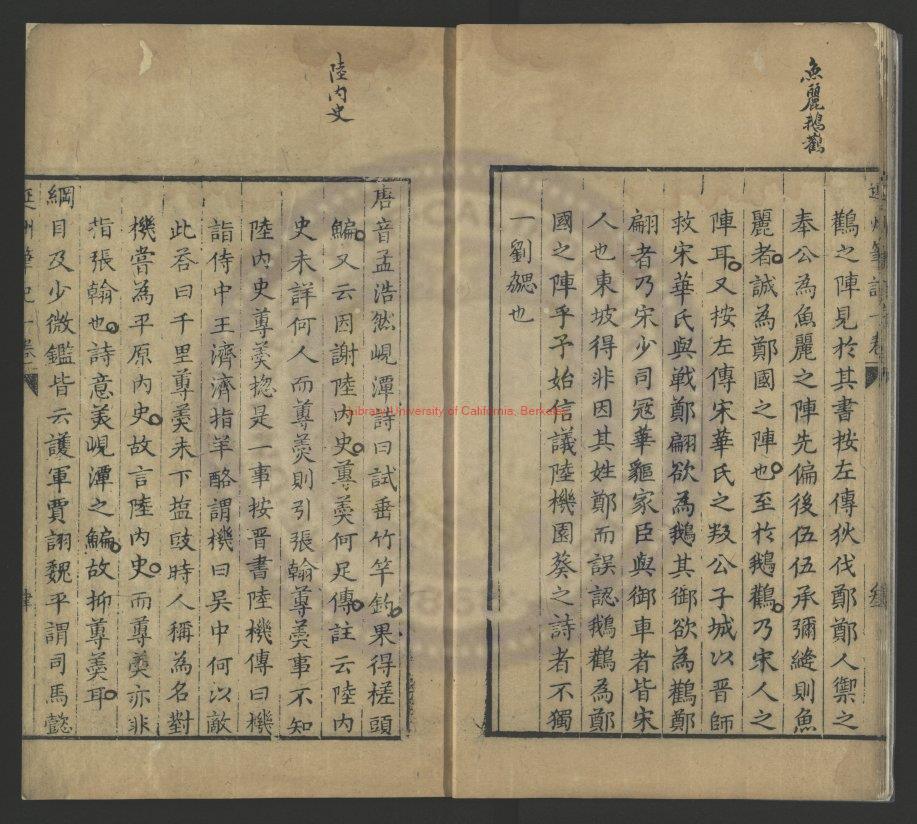 魚麗鵝鸛
鸛之陣見於其書按左傳狄伐鄭鄭人禦之
奉公為魚麗之陣先偏後伍伍承彌縫則魚
麗者誠為鄭國之陣也至於鵝鸛乃宋人之
陣耳又按左傳宋華氏之叛公子城以晉師
救宋華氏與戰鄭翩欲為鵝其御欲為鸛鄭
翩者乃宋少司冦華貙家臣與御車者皆宋
人也東坡得非因其姓鄭而誤認鵝鸛為鄭
國之陣乎予始信議陸機園葵之詩者不獨
一劉勰也
陸內史
唐音孟浩然峴潭詩曰試垂竹竿釣果得槎頭
鯿又云因謝陸內史蓴羹何足傳註云陸內
史未詳何人而蓴羹則引張翰蓴羹事不知
陸內史蓴羹揔是一事按晉書陸機傳曰機
詣侍中王濟濟指羊酪謂機曰吳中何以敵
此荅曰千里蓴羹未下塩豉時人稱為名對
機嘗為平原內史故言陸內史而蓴羹亦非
指張翰也詩意美峴潭之鯿故抑蓴羹耳
綱目及少微鑑皆云護軍賈詡魏平謂司馬懿
Library University of California, Berkeley